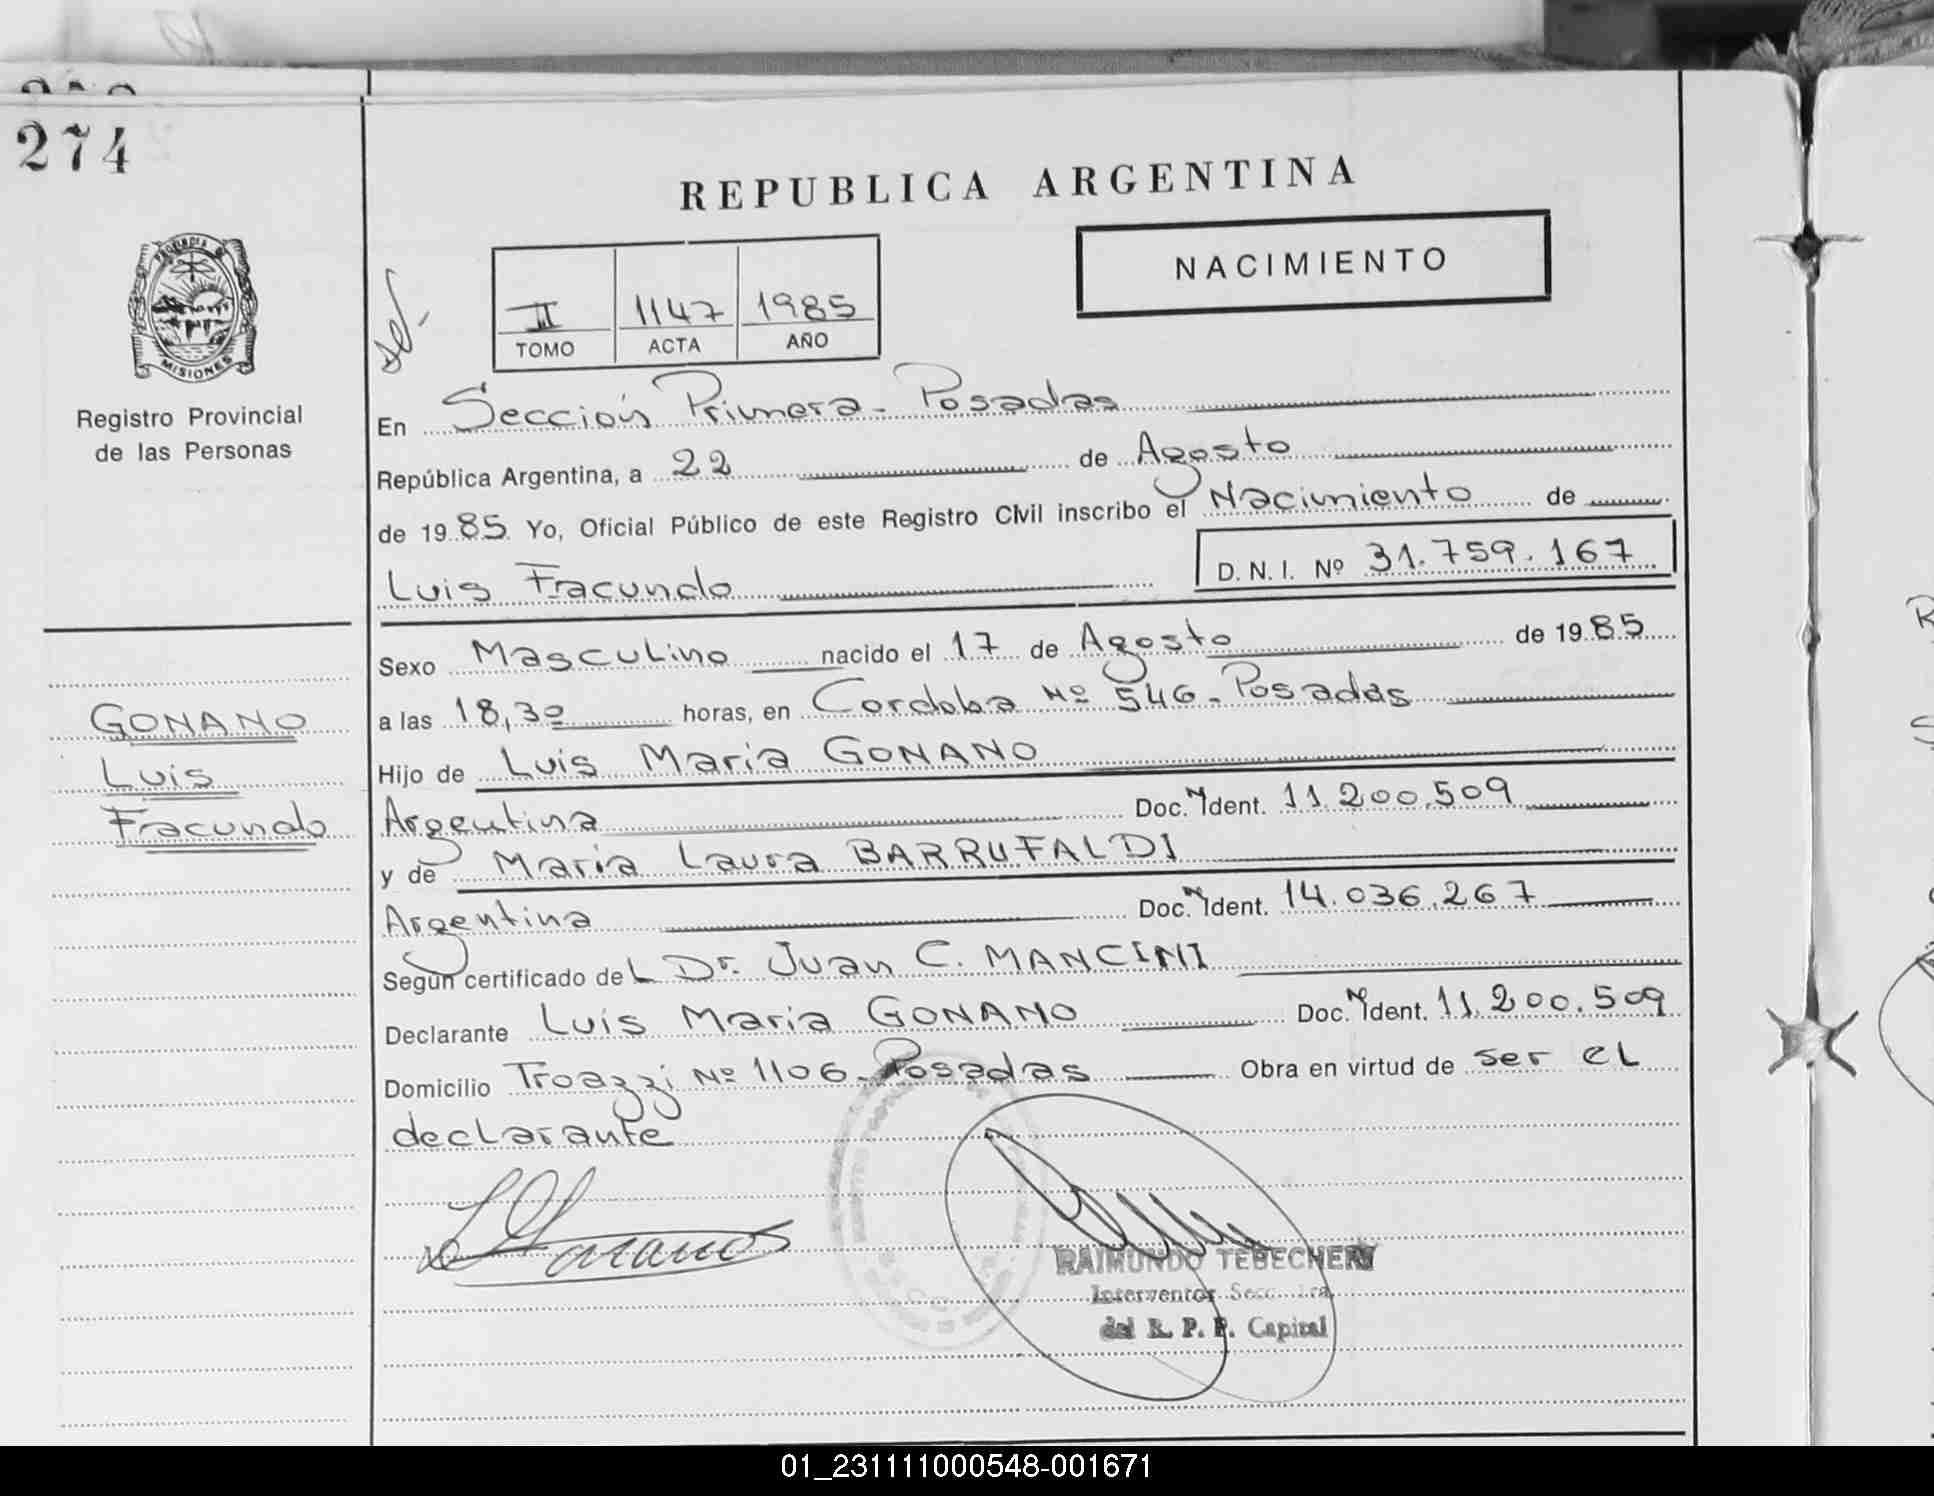 274
REPUBLICA ARGENTINA
NACIMIENTO
PROVINCIA DE
MISIONES
Registro Provincial
de las Personas
II 1147 1985
TOMO ACTA AÑO
En Sección Primera - Posadas
República Argentina, a 22 de Agosto
de 1985. Yo, Oficial Público de este Registro Civil inscribo el Nacimiento de
Luis Facundo D. N. I. Nº 31.759.167
GONANO
Luis
Facundo
Sexo Masculino nacido el 17 de Agosto de 1985
a las 18,30 horas, en Cordoba Nº 546 - Posadas
Hijo de Luis Maria GONANO
Argentina Doc. N Ident. 11.200.509
y de Maria Laura BARRUFALDI
Argentina Doc. N Ident. 14.036.267
Según certificado del Dr. Juan C. MANCINI
Declarante Luis Maria GONANO Doc. N Ident. 11.200.509
Domicilio Troazzi Nº 1106 - Posadas Obra en virtud de ser el
declarante
RAIMUNDO TEBECHERY
Interventor
del R. P. P. Capital
01_231111000548-001671